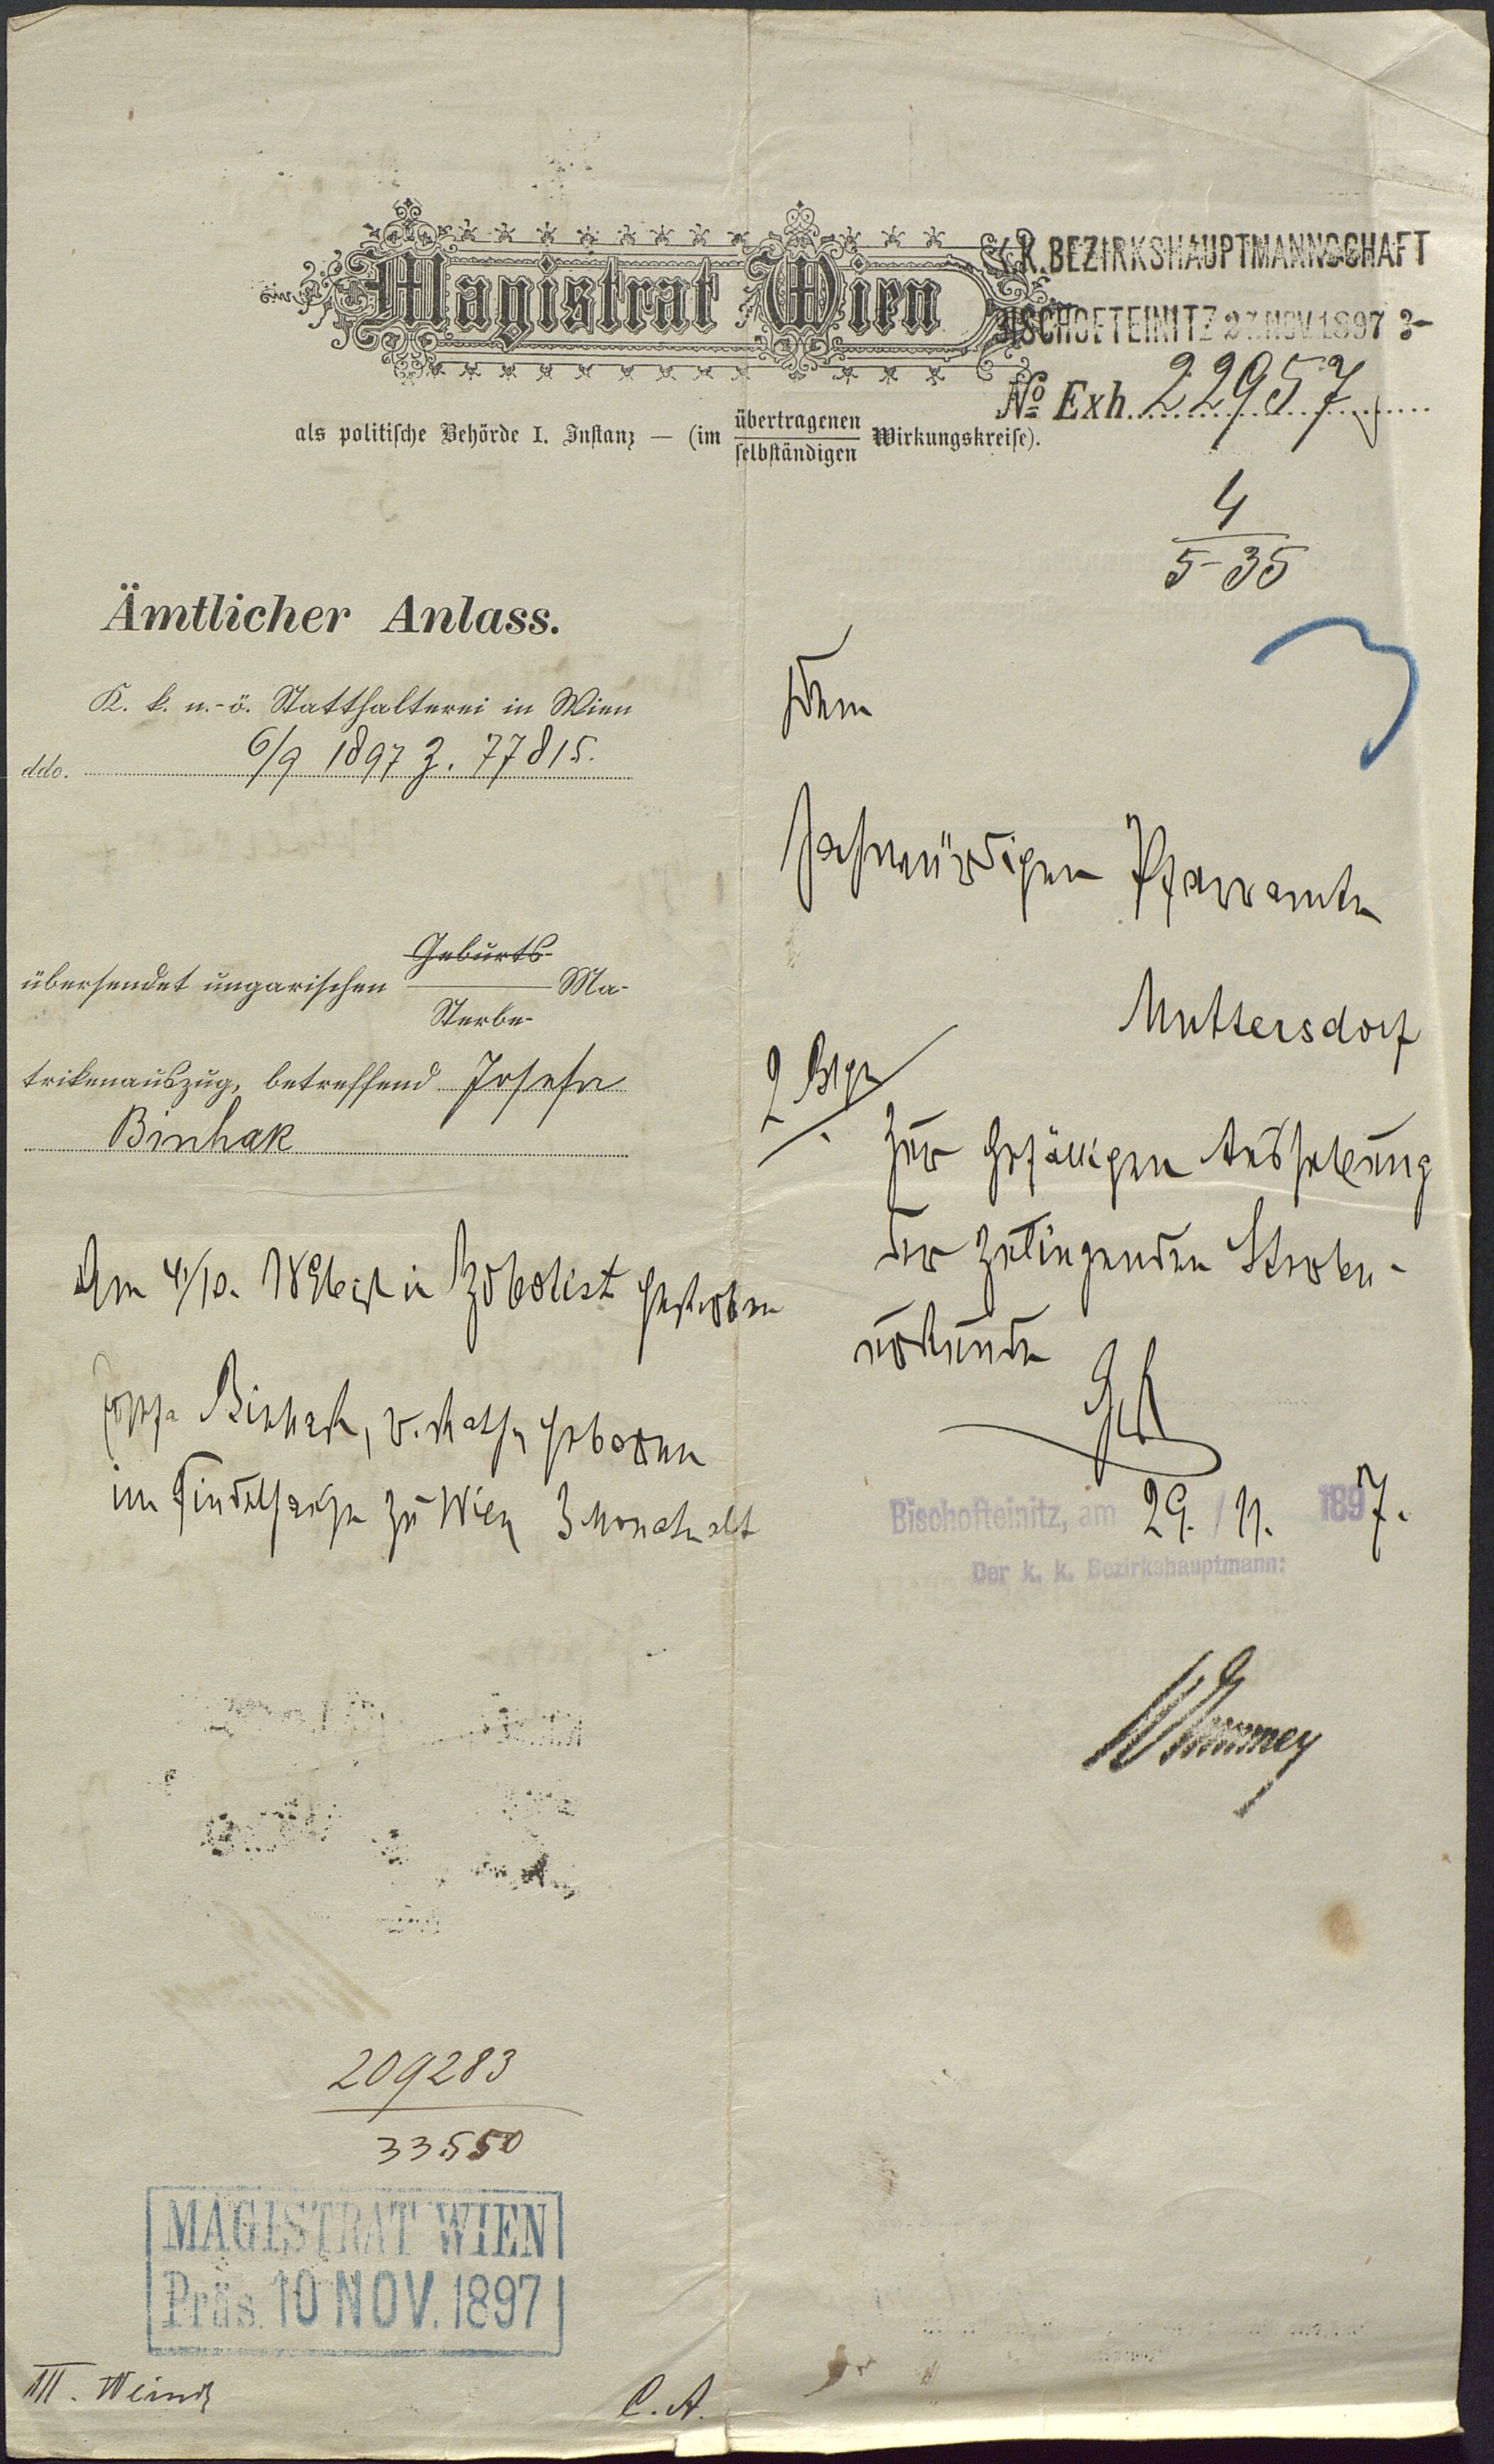 Magistrat Wien
K.K. BEZIRKSHAUPTMANNSCHAFT
BISCHOFTEINITZ 27. NOV. 1897
№ Exh. 22957
als politische Behörde I. Instanz — (im übertragenen
selbständigen Wirkungskreise).
4
5-35
Ämtlicher Anlass.
K. k. n.-ö. Statthalterei in Wien
ddo. 6/9 1897 Z. 77815.
übersendet ungarischen Geburts-
Sterbe- Ma-
trikenauszug, betreffend Josefa
Binhak
Am 4/10. 1896 ist in gestorben
Josefa Binhak, v. kath., geboren
im Findelhause zu Wien 3 Monate alt
209283
33550
MAGISTRAT WIEN
Präs. 10 NOV. 1897
III.
C. A.
Dem
hochwürdigen Pfarramte
Muttersdorf
zur gefälligen
der zuliegenden Sterbe-
urkunde
Bischofteinitz, am 29./11. 1897.
Der k. k. Bezirkshauptmann: